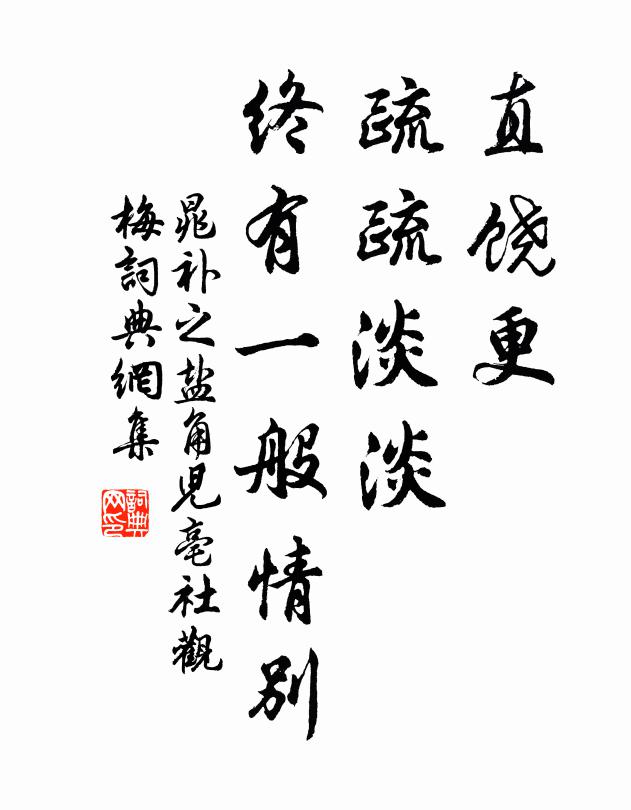 直饶更
疏疏淡淡
终有一般情别
晁补之盐角児亳社觀
梅詞典網集
詞典网印